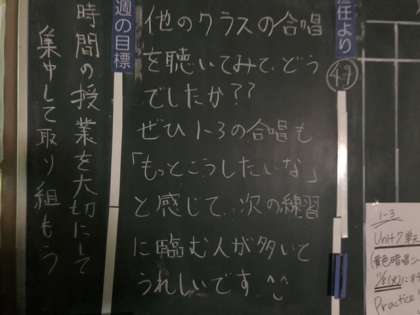 任より
㊼
他のクラスの合唱
を聴いてみて、どう
でしたか??
ぜひ1-3の合唱も
「もっとこうしたいな」
と感じて、次の練習
に臨む人が多いと
うれしいです^^
週の目標
時間の授業を大切にして
集中して取り組もう
1-3
Unit7
Practice